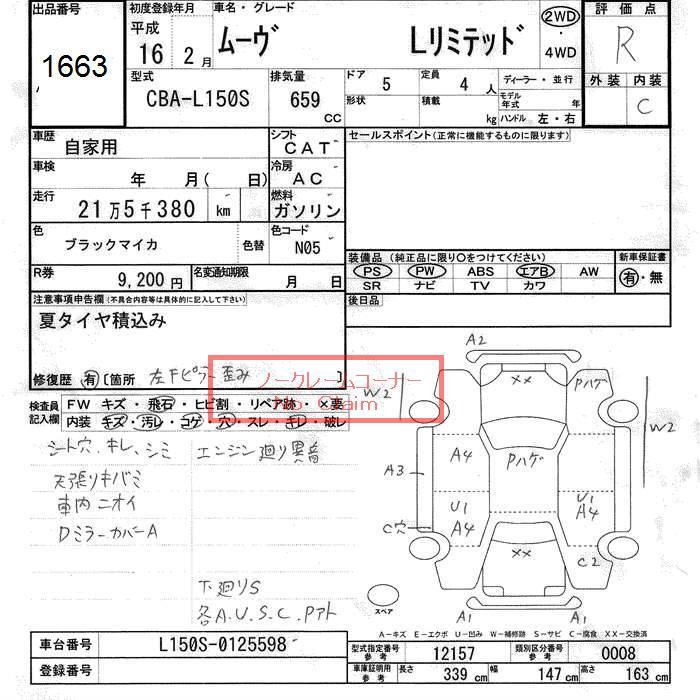 出品番号
1663
初度登録年月
平成
16年 2月
車名・グレード
ムーヴ Lリミテッド
2WD
・
4WD
評価点
R
外装 内装
C
型式
CBA-L150S
排気量
659
CC
ドア 5
形状
定員 4人
積載 kg
ディーラー・並行
モデル年式 年
ハンドル 左・右
車歴 自家用
シフト CAT
セールスポイント(正常に機能するものに限ります)
車検 年 月( 日)
冷房 AC
走行 21万5千380 km
燃料 ガソリン
色 ブラックマイカ 色替
色コード N05
装備品(純正品に限り○をつけてください)
新車保証書
PS PW ABS エアB AW
有・無
SR ナビ TV カワ
R券 9,200円
名変通知期限 月 日
後日品
注意事項申告欄(不具合内容等は具体的に記入して下さい)
夏タイヤ積込み
修復歴 有〔箇所 左Fピラー歪み 〕
ノークレームコーナー
No Claim
検査員
記入欄
FW キズ・飛石・ヒビ割・リペア跡・×要
内装 キズ・汚レ・コゲ・穴・スレ・キレ・破レ
シート穴、キレ、シミ
エンジン廻り異音
天張りキバミ
車内ニオイ
DミラーカバーA
下廻りS
各A.U.S.C.Pアト
A2
××
Pハゲ
W2
W2
A4
Pハゲ
A3
U1
A4
U1
A4
C穴
××
C2
スペア
A1
A1
A-キズ E-エクボ U-凹み W-補修跡 S-サビ C-腐食 XX-交換済
車台番号 L150S-0125598
登録番号
型式指定番号
参考
12157
類別区分番号
参考
0008
車庫証明用
参考
長さ 339 cm
幅 147 cm
高さ 163 cm